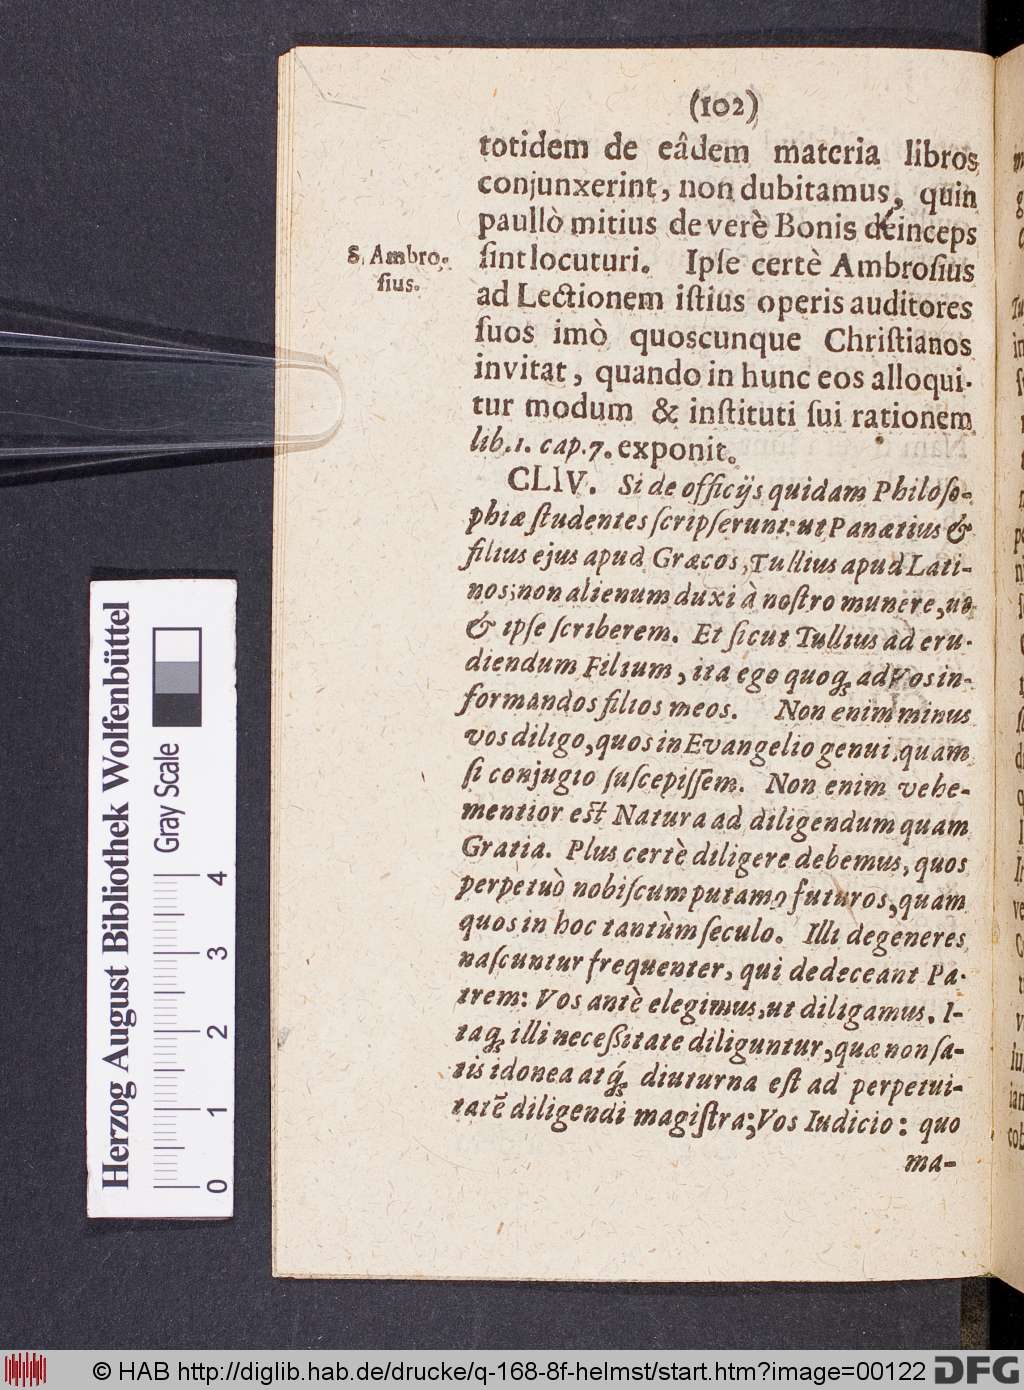 (102)
totidem de eâdem materia libros
conjunxerint, non dubitamus, quin
paullò mitius de verè Bonis deinceps
S. Ambro-
ſius.
ſint locuturi. Ipſe certè Ambroſius
ad Lectionem iſtius operis auditores
ſuos imò quoscunque Chriſtianos
invitat, quando in hunc eos alloqui-
tur modum & inſtituti ſui rationem
lib. 1. cap. 7. exponit.
CLIV. Si de officijs quidam Philoſo-
phiæ ſtudentes ſcripſerunt: ut Panætius &
filius ejus apud Græcos, Tullius apud Lati-
nos; non alienum duxi à noſtro munere, ut
& ipſe ſcriberem. Et ſicut Tullius ad eru-
diendum Filium, ita ego quoq; ad Vos in-
formandos filios meos. Non enim minus
vos diligo, quos in Evangelio genui, quam
ſi conjugio ſuſcepiſſem. Non enim vehe-
mentior eſt Natura ad diligendum quam
Gratia. Plus certè diligere debemus, quos
perpetuò nobiſcum putamꝰ futuros, quam
quos in hoc tantùm ſeculo. Illi degeneres
naſcuntur frequenter, qui dedeceant Pa-
trem: Vos antè elegimus, ut diligamus. I-
taq; illi neceſſitate diliguntur, quæ non ſa-
tis idonea atq́; diuturna eſt ad perpetui-
tatē diligendi magiſtra; Vos Iudicio: quo
ma-
Herzog August Bibliothek Wolfenbüttel
Gray Scale
0 1 2 3 4
© HAB http://diglib.hab.de/drucke/q-168-8f-helmst/start.htm?image=00122
DFG